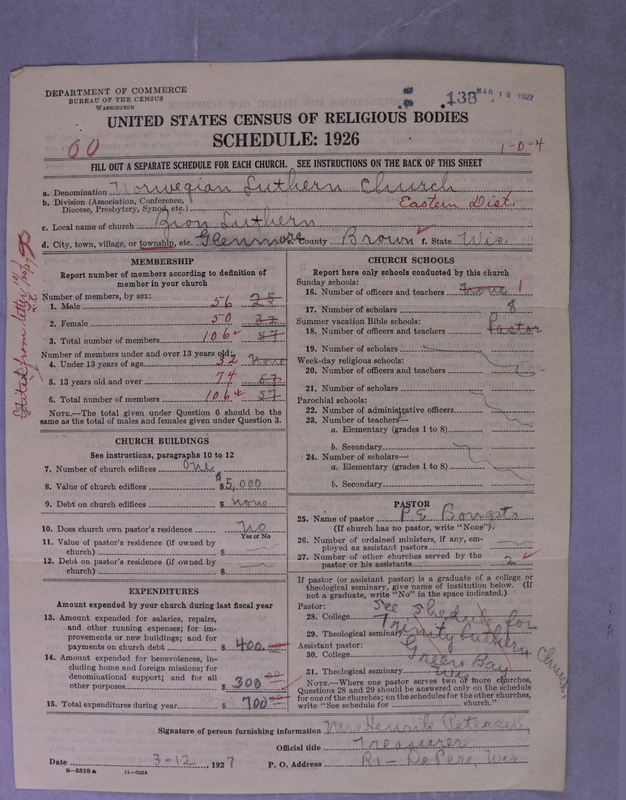 DEPARTMENT OF COMMERCE
BUREAU OF THE CENSUS
WASHINGTON
138
MAR 18 1927
UNITED STATES CENSUS OF RELIGIOUS BODIES
SCHEDULE: 1926
00
1-0-4
FILL OUT A SEPARATE SCHEDULE FOR EACH CHURCH. SEE INSTRUCTIONS ON THE BACK OF THIS SHEET
a. Denomination Norwegian Luthern Church
b. Division (Association, Conference, Diocese, Presbytery, Synod, etc.) Eastern Dist.
c. Local name of church Zion Luthern
d. City, town, village, or township, etc. Glenmore e. County Brown f. State Wis.
MEMBERSHIP
Report number of members according to definition of member in your church
Number of members, by sex:
1. Male 56 25
2. Female 50 32
3. Total number of members 106 57
Number of members under and over 13 years old:
4. Under 13 years of age 32 None
5. 13 years old and over 74 57
6. Total number of members 106 57
NOTE.—The total given under Question 6 should be the same as the total of males and females given under Question 3.
CHURCH BUILDINGS
See instructions, paragraphs 10 to 12
7. Number of church edifices One
8. Value of church edifices $5,000
9. Debt on church edifices $ none
10. Does church own pastor's residence No
Yes or No
11. Value of pastor's residence (if owned by church) $
12. Debt on pastor's residence (if owned by church) $
EXPENDITURES
Amount expended by your church during last fiscal year
13. Amount expended for salaries, repairs, and other running expenses; for improvements or new buildings; and for payments on church debt $ 400.00
14. Amount expended for benevolences, including home and foreign missions; for denominational support; and for all other purposes $ 300.00
15. Total expenditures during year $ 700.00
CHURCH SCHOOLS
Report here only schools conducted by this church
Sunday schools:
16. Number of officers and teachers None 1
17. Number of scholars 8
Summer vacation Bible schools:
18. Number of officers and teachers Pastor
19. Number of scholars
Week-day religious schools:
20. Number of officers and teachers
21. Number of scholars
Parochial schools:
22. Number of administrative officers
23. Number of teachers—
a. Elementary (grades 1 to 8)
b. Secondary
24. Number of scholars—
a. Elementary (grades 1 to 8)
b. Secondary
PASTOR
25. Name of pastor P E
(If church has no pastor, write "None")
26. Number of ordained ministers, if any, employed as assistant pastors
27. Number of other churches served by the pastor or his assistants 2
If pastor (or assistant pastor) is a graduate of a college or theological seminary, give name of institution below. (If not a graduate, write "No" in the space indicated.)
Pastor:
28. College
29. Theological seminary
Assistant pastor:
30. College
31. Theological seminary
See shedule for
Trinity Luthern Church,
Green Bay
Wis
NOTE.—Where one pastor serves two or more churches, Questions 28 and 29 should be answered only on the schedule for one of the churches; on the schedules for the other churches, write "See schedule for church."
Signature of person furnishing information Mrs Henrik Petersen
Official title Treasurer
Date 3-12, 1927 P. O. Address R1 - DePere, Wis
8-5518a 11-9054